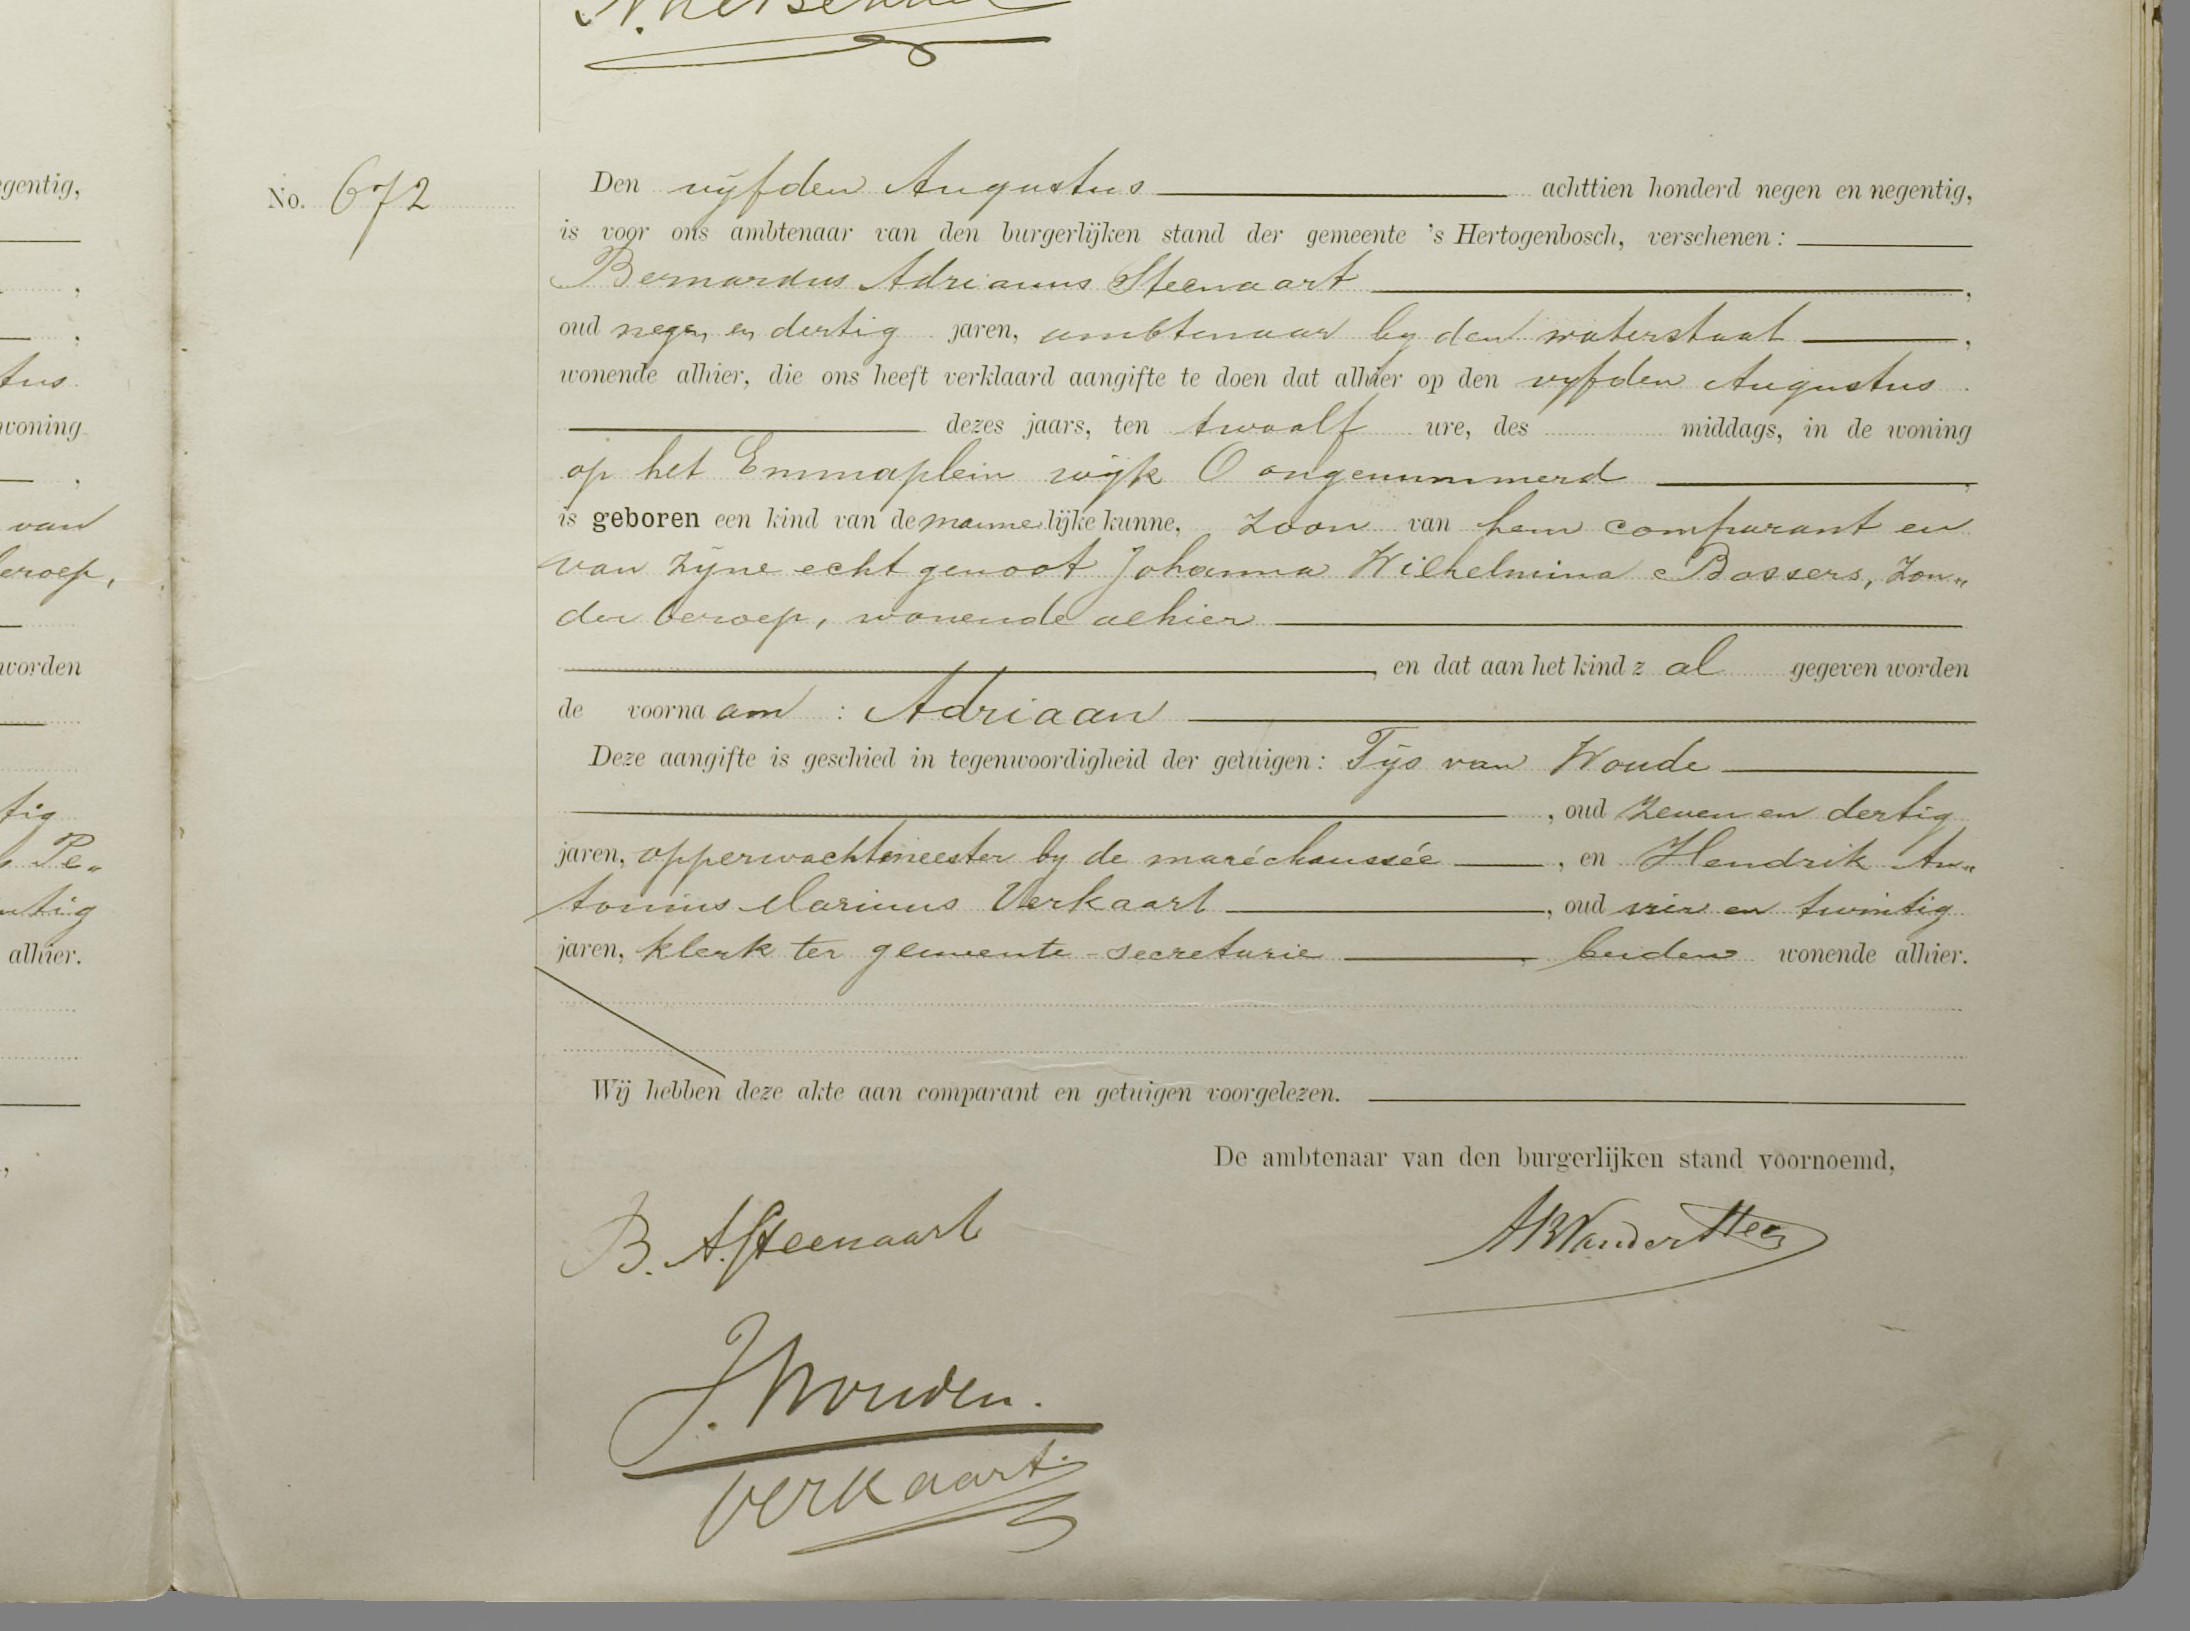 gentig,
tus
woning
van
beroep,
worden
tig
Pe„
ntig
alhier.
No. 672
Den vijfden Augustus achttien honderd negen en negentig,
is voor ons ambtenaar van den burgerlijken stand der gemeente 's Hertogenbosch, verschenen:
Bernardus Adrianus Steenaart,
oud negen en dertig jaren, ambtenaar by den waterstaat,
wonende alhier, die ons heeft verklaard aangifte te doen dat alhier op den vyfden Augustus
dezes jaars, ten twaalf ure, des middags, in de woning
op het Emmaplein wijk O ongenummerd,
is geboren een kind van de mannelijke kunne, zoon van hem comparant en
van zijne echtgenoot Johanna Wilhelmina Bossers, zon„
der beroep, wonende alhier
, en dat aan het kind zal gegeven worden
de voornaam : Adriaan
Deze aangifte is geschied in tegenwoordigheid der getuigen: Tijs van Woude
, oud zeven en dertig
jaren, opperwachtmeester by de maréchaussée, en Hendrik An„
tonius Marinus Verkaart, oud vier en twintig
jaren, klerk ter gemeente-secretarie, beiden wonende alhier.
Wij hebben deze akte aan comparant en getuigen voorgelezen.
De ambtenaar van den burgerlijken stand voornoemd,
B. A. Steenaart
Verkaart.